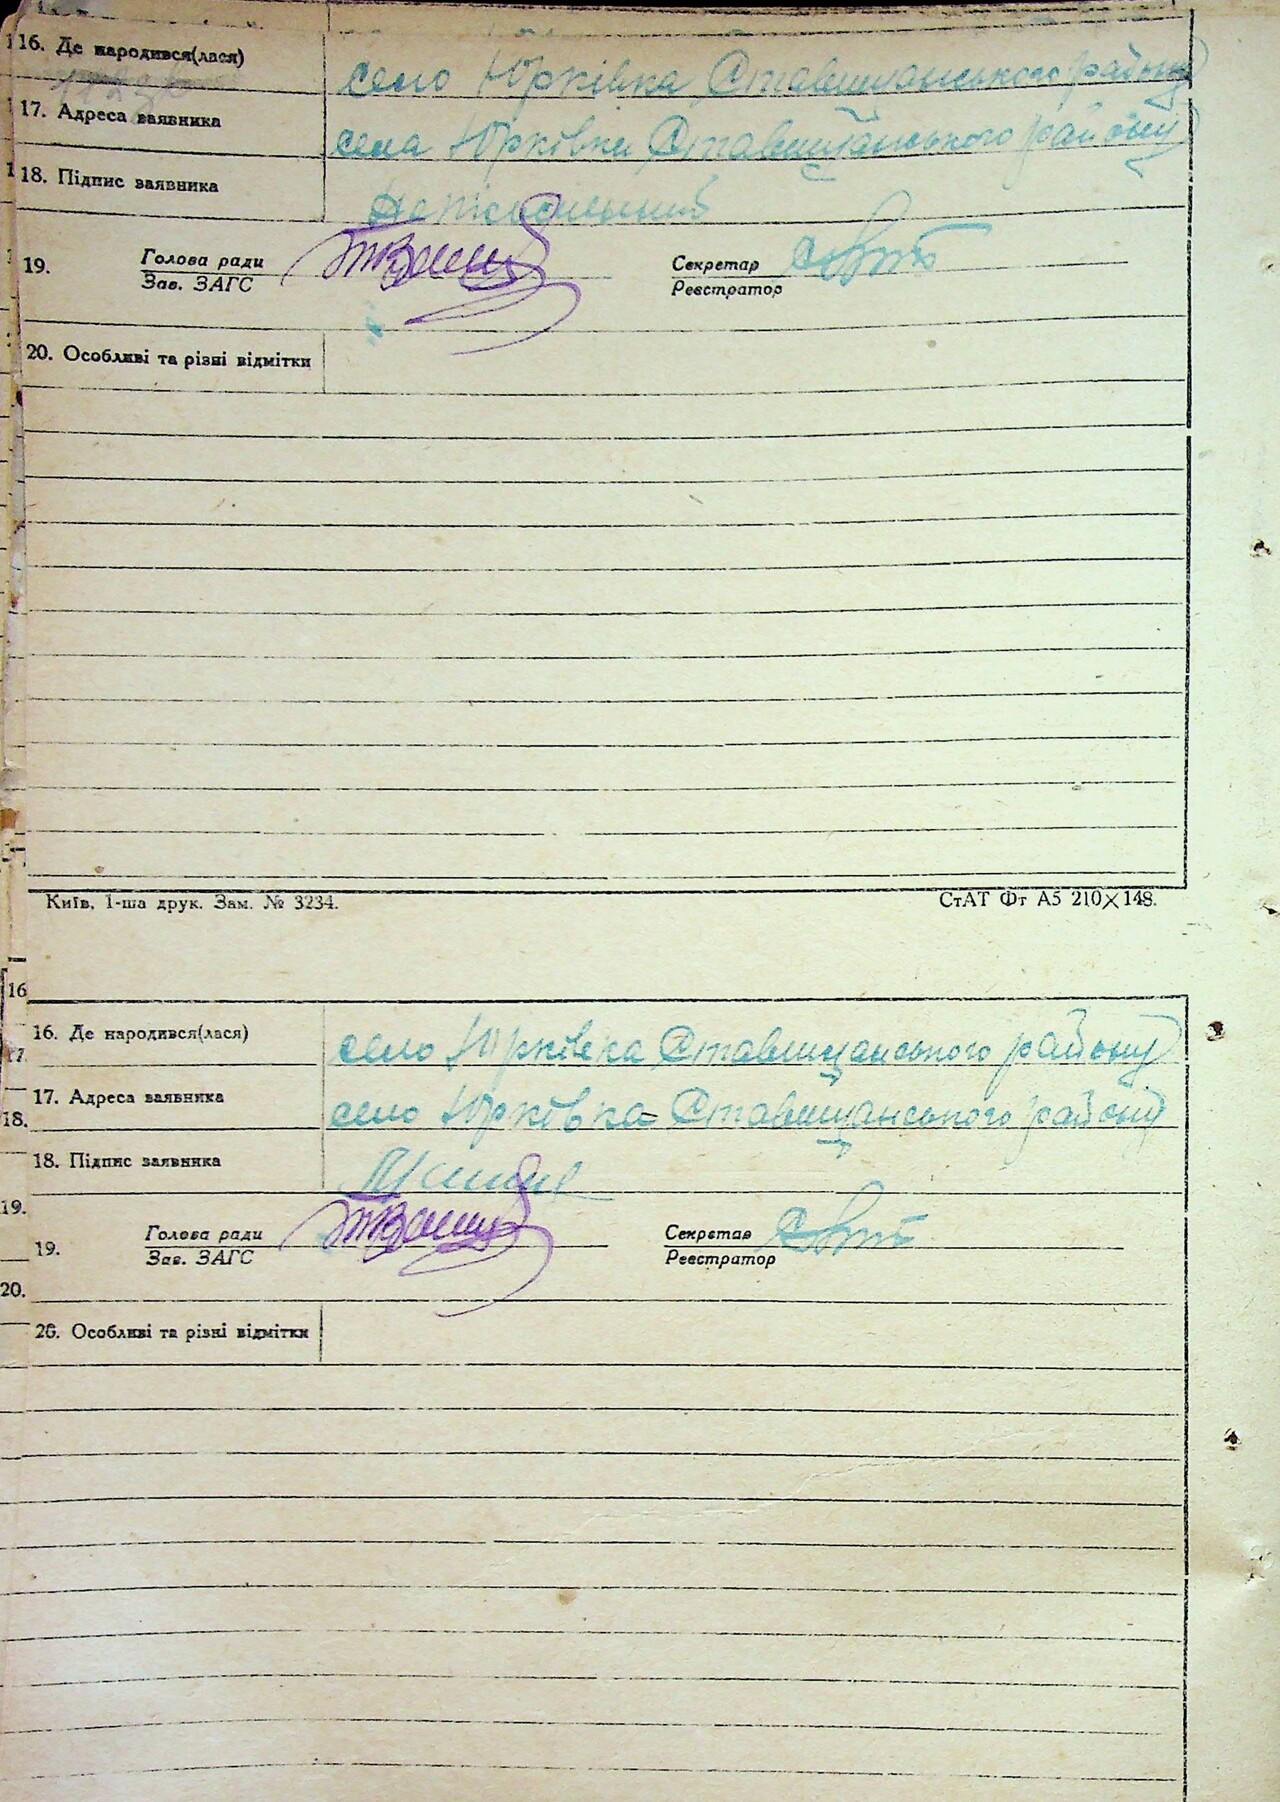 16. Де народився(лася) село Юрківка Ставищанського району
17. Адреса заявника села Юрківки Ставищанського району
18. Підпис заявника
19. Голова ради Секретар
Зав. ЗАГС Реєстратор
20. Особливі та різні відмітки
Київ, 1-ша друк. Зам. № 3234. СтАТ Фт А5 210×148.
16
16. Де народився(лася) село Юрківка Ставищанського району
17.
17. Адреса заявника село Юрківка Ставищанського району
18.
18. Підпис заявника
19.
Голова ради Секретар
19.
Зав. ЗАГС Реєстратор
20.
20. Особливі та різні відмітки